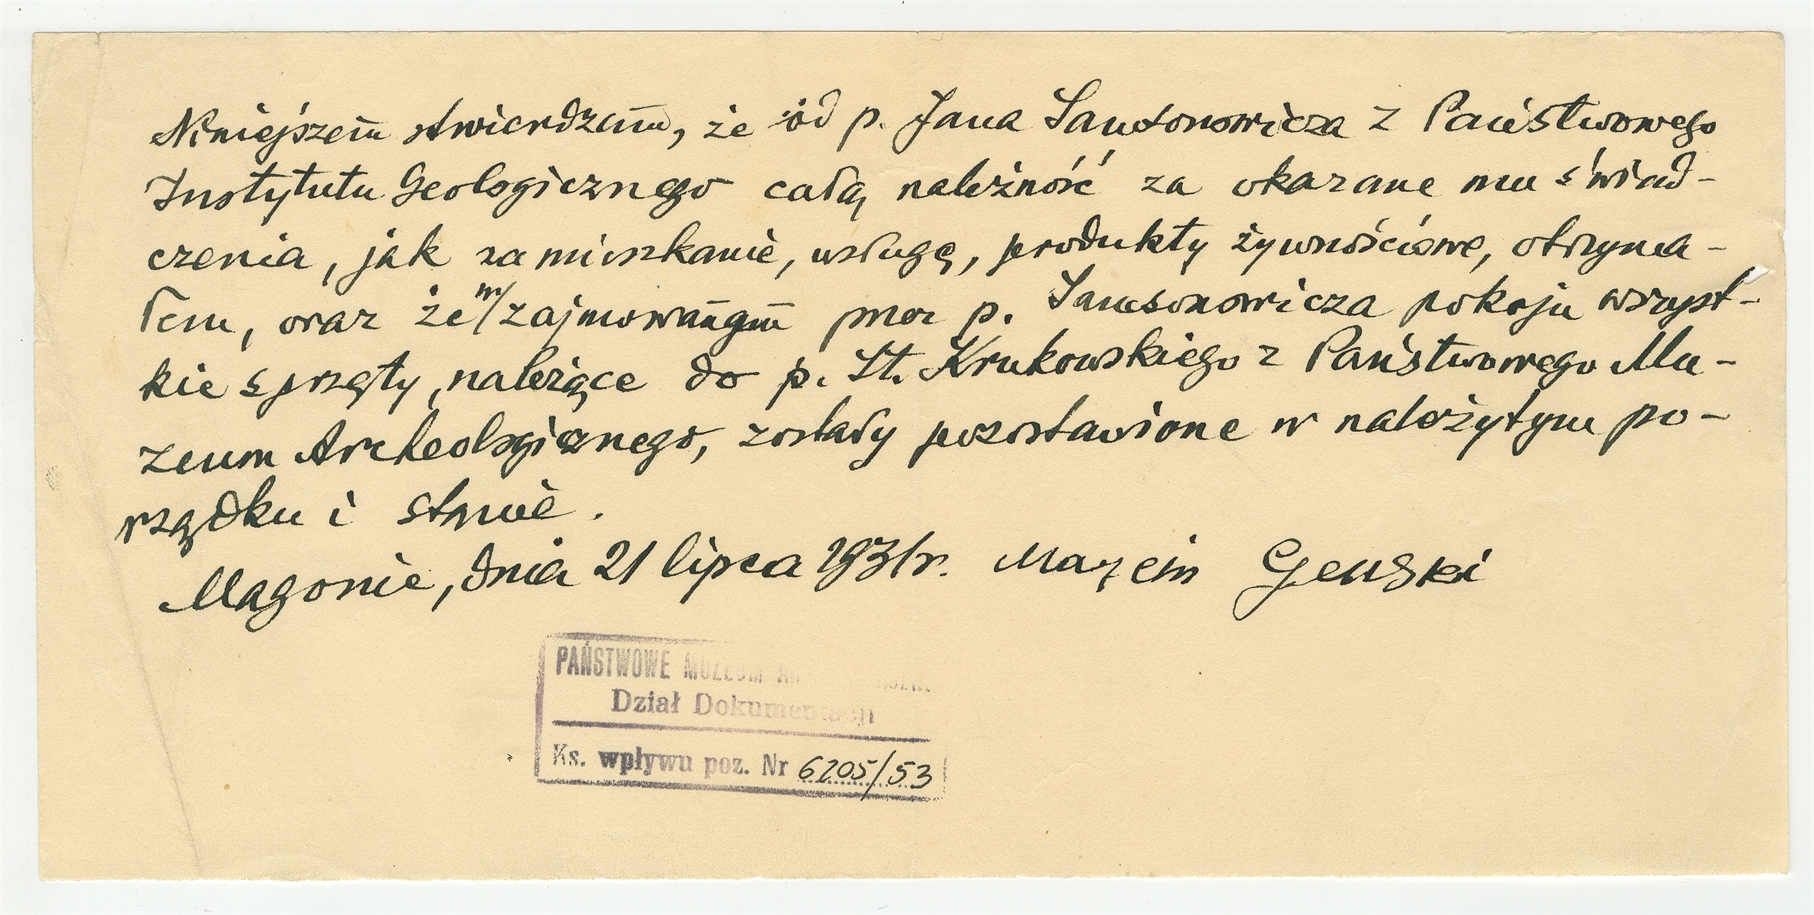 Niniejszem stwierdzam, że od p. Jana Samsonowicza z Państwowego
Instytutu Geologicznego całą należność za okazane mu świad-
czenia, jak za mieszkanie, usługę, produkty żywnościowe, otrzyma-
łem, oraz że w/zajmowanym przez p. Samsonowicza pokoju wszyst-
kie sprzęty, należące do p. St. Krukowskiego z Państwowego Mu-
zeum Archeologicznego, zostały pozostawione w należytym po-
rządku i stanie.
Magonie, dnia 21 lipca 1931r. Marcin
PAŃSTWOWE MUZEUM
Dział Dokumentacji
Ks. wpływu poz. Nr 6205/53